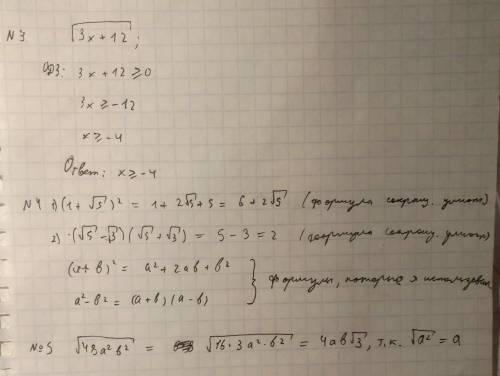 №3 √(3x + 12);
ОДЗ: 3x + 12 ⩾ 0
3x ⩾ -12
x ⩾ -4
Ответ: x ⩾ -4
№4 1) (1 + √5)² = 1 + 2√5 + 5 = 6 + 2√5 (формула сокращ. умнож)
2) (√5 - √3)(√5 + √3) = 5 - 3 = 2 (формула сокращ. умнож)
(a + b)² = a² + 2ab + b²
a² - b² = (a + b)(a - b) } формулы, которые я использовал
№5 √(48a²b²) = √(16·3a²·b²) = 4ab√3, т.к. √a² = a